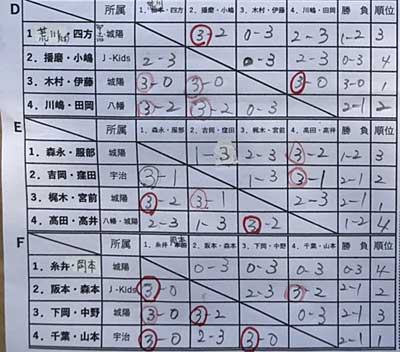 D 所属 1. 四方 2. 播磨・小嶋 3. 木村・伊藤 4. 川嶋・田岡 勝 負 順位
1 荒川・四方 城陽 3-2 0-3 2-3 1-2 3
2. 播磨・小嶋 J-Kids 2-3 0-3 2-3 0-3 4
3. 木村・伊藤 城陽 3-0 3-0 3-0 3-0 1
4. 川嶋・田岡 八幡 3-2 3-2 0-3 2-1 2
E 所属 1. 森永・服部 2. 吉岡・窪田 3. 梶木・宮前 4. 高田・高井 勝 負 順位
1. 森永・服部 城陽 1-3 2-3 3-2 1-2 3
2. 吉岡・窪田 宇治 3-1 1-3 3-1 2-1 2
3. 梶木・宮前 城陽 3-2 3-1 2-3 2-1 1
4. 高田・高井 八幡・城陽 2-3 1-3 3-2 1-2 4
F 所属 1. 糸井・岡本 2. 阪本・森本 3. 下岡・中野 4. 千葉・山本 勝 負 順位
1. 糸井・岡本 城陽 0-3 0-3 0-3 0-3 4
2. 阪本・森本 J-Kids 3-0 2-3 3-2 2-1 2
3. 下岡・中野 城陽 3-0 3-2 0-3 2-1 3
4. 千葉・山本 宇治 3-0 2-3 3-0 2-1 1